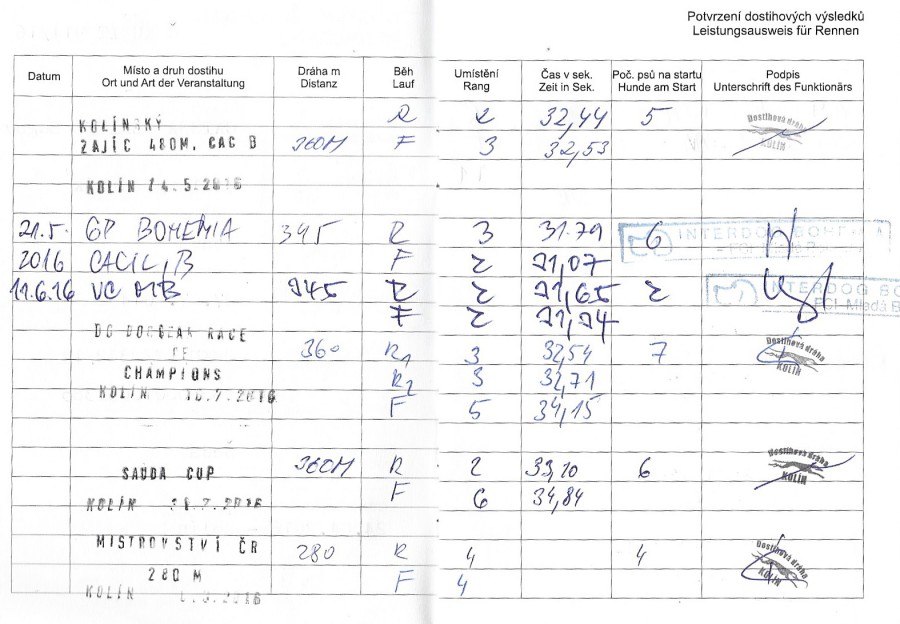 Potvrzení dostihových výsledků
Leistungsausweis für Rennen
Datum Místo a druh dostihu Dráha m Běh Umístění Čas v sek. Poč. psů na startu Podpis
Ort und Art der Veranstaltung Distanz Lauf Rang Zeit in Sek. Hunde am Start Unterschrift des Funktionärs
R 2 32,44 5 Dostihová dráha
KOLÍNSKÝ
ZAJÍC 480M, CAC B 360M F 3 32,53 KOLÍN
KOLÍN 14.5.2016
21.5. GP BOHEMIA 345 R 3 31.79 6 INTERDOG BOHEMIA
2016 CACIL, B F 2
11.6.16 VC MB R 2 2 INTERDOG BO
FCI-Mladá B
F 2
RACE
OF 360 R1 3 32,54 7 Dostihová dráha
CHAMPIONS R2 3 32,71 KOLÍN
KOLÍN 2016 F 5 34,15
360M R 2 33,10 6 Dostihová dráha
CUP KOLÍN
KOLÍN F 6 34,84
MISTROVSTVÍ ČR 280 R 4 4 Dostihová dráha
280 M F 4 KOLÍN
KOLÍN 2016